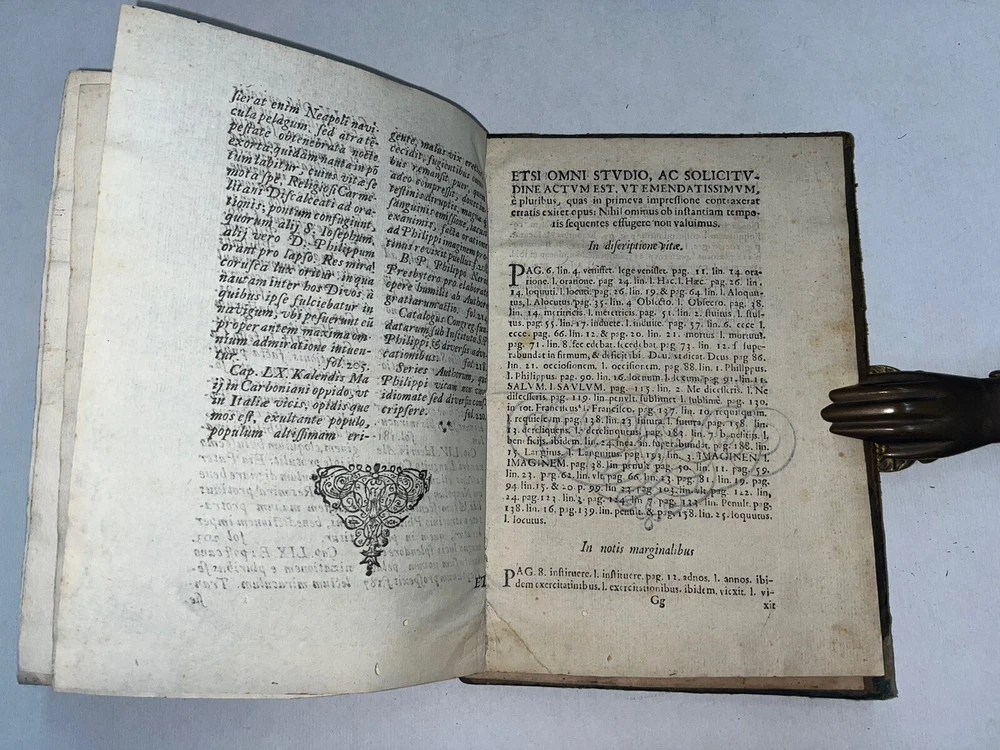 sierat enim Neapoli navi-
cula pelagum, sed atra te-
pestate obtenebrata nocte
exorta, quidam nauta in põ
tum labitur, cuius vitæ se
mota spe, Religiosi Carme
litani Discalceati ad ora-
tionis; pontum confugiunt,
quorum alij S. Iosephum,
alij vero D. Philippum
orant pro lapso. Res mira!
corusca lux oritur, in qua
nautam inter hos Divos, à
quibus ipse fulciebatur in
navigium, vbi posuerunt eũ
properantem maxima om
nium admiratione intuen-
tur. fol. 205.
Cap. LX. Kalendis Ma
ij in Carboniani oppido, vt
in Italiæ vicis, opidisque
mos est, exultante populo,
populum altissimam eri-
gente, malus vix erect
cecidit, fugientibus omni
bus remansit puer, quem
adeo compressit,
sanguine emisso,
exanimis, facta oratione
ad Philippi imaginem pro
tinus revixit puellus
B. P. Philippo Nerio
Presbytero pro elaborato
opere humilis ab Authore
gratiarum actio. fol. 212
Catalogus Congreg.
datarum sub Instituto S. P.
Philippi & diversis
cationibus. fol. 218.
Series Authorum, qui
Philippi vitam
idiomate sed diverso
cripsere. fol.
ET
ETSI OMNI STVDIO, AC SOLICITV-
DINE ACTVM EST, VT EMENDATISSIMVM,
è pluribus, quas in primeva impressione contraxerat
erratis exiret opus; Nihil ominus ob instantiam tempo-
ris sequentes effugere non valuimus.
In discriptione vitæ.
PAG. 6. lin. 4. venisset. lege venisset. pag. 11. lin. 14. ora-
rione. l. oratione. pag 24. lin. l. Hæc. l. Hæc pag. 26. lin.
14. loquuti. l. locuti. pag. 26. lin. 19. & pag. 64. lin. l. Aloquu-
tus, l. Alocutus. pag. 35. lin. 4 Obiecto. l. Obsecro. pag. 38.
lin. 14. meritricis. l. meretricis. pag. 51. lin. 2. stuitus l. stul-
tus. pag. 55. lin. 17. induete. l. induite. pag. 57. lin. 6. ecce l.
ecce. pag. 66. lin. 12. & pag. 20. lin. 21. mortus l. mortuus.
pag. 71. lin. 8. sec edebat. l. secedebat pag. 73. lin. 12. f supe-
rabundat in firmum, & deficit ibi. Deus. pag 86.
lin. 21. occiosionem. l. occisionem. pag. 88. lin. 1. Phillipus.
l. Philippus. pag. 90. lin. 16. pag. 91. lin. 11.
SALVM. l. SAVLVM. pag. 113. lin. 2. Me diecesseris. l. Ne
discesseris. pag. 119. lin. penult. sublimet l. sublime. p. 130.
in rot. Francisus l. Francisco. pag. 137. lin. 10. requisquam.
l. requiescam pag. 138. lin. 23 futura. l. futura, pag. 158. lin.
13. derelinquens. l. derelinquens. pag. 183. lin. 7. beneficijs. l.
beneficijs. ibidem. lin. 24. inea. in super bundat. pag. 188. lin.
15. Largius. l. Languius pag. 193. lin. 3. IMAGINEN. l.
IMAGINEM. pag. 38. lin penult pag. 50. lin. 11. pag. 59.
lin. 23. pag. 62. lin. vlt. pag 66. lin. 23. pag. 81. lin. 19. pag.
94. lin. 15. & 20 p. 99. lin 22. pag. 103. lin. vlt. pag. 122. lin.
24. pag. 123. lin. 3. pag. 124. lin 7. pag. 133. lin. Penult. pag.
138. lin. 16. pag. 139. lin. penult. & pag. 158. lin. 25. loquutus.
l. locutus.
In notis marginalibus
PAG. 8. instituere. l. instituere. pag. 12. adnos. l. annos. ibi-
dem exercitatinibus. l. exercitationibus. ibidem. vicxit. l. vi-
Gg xit